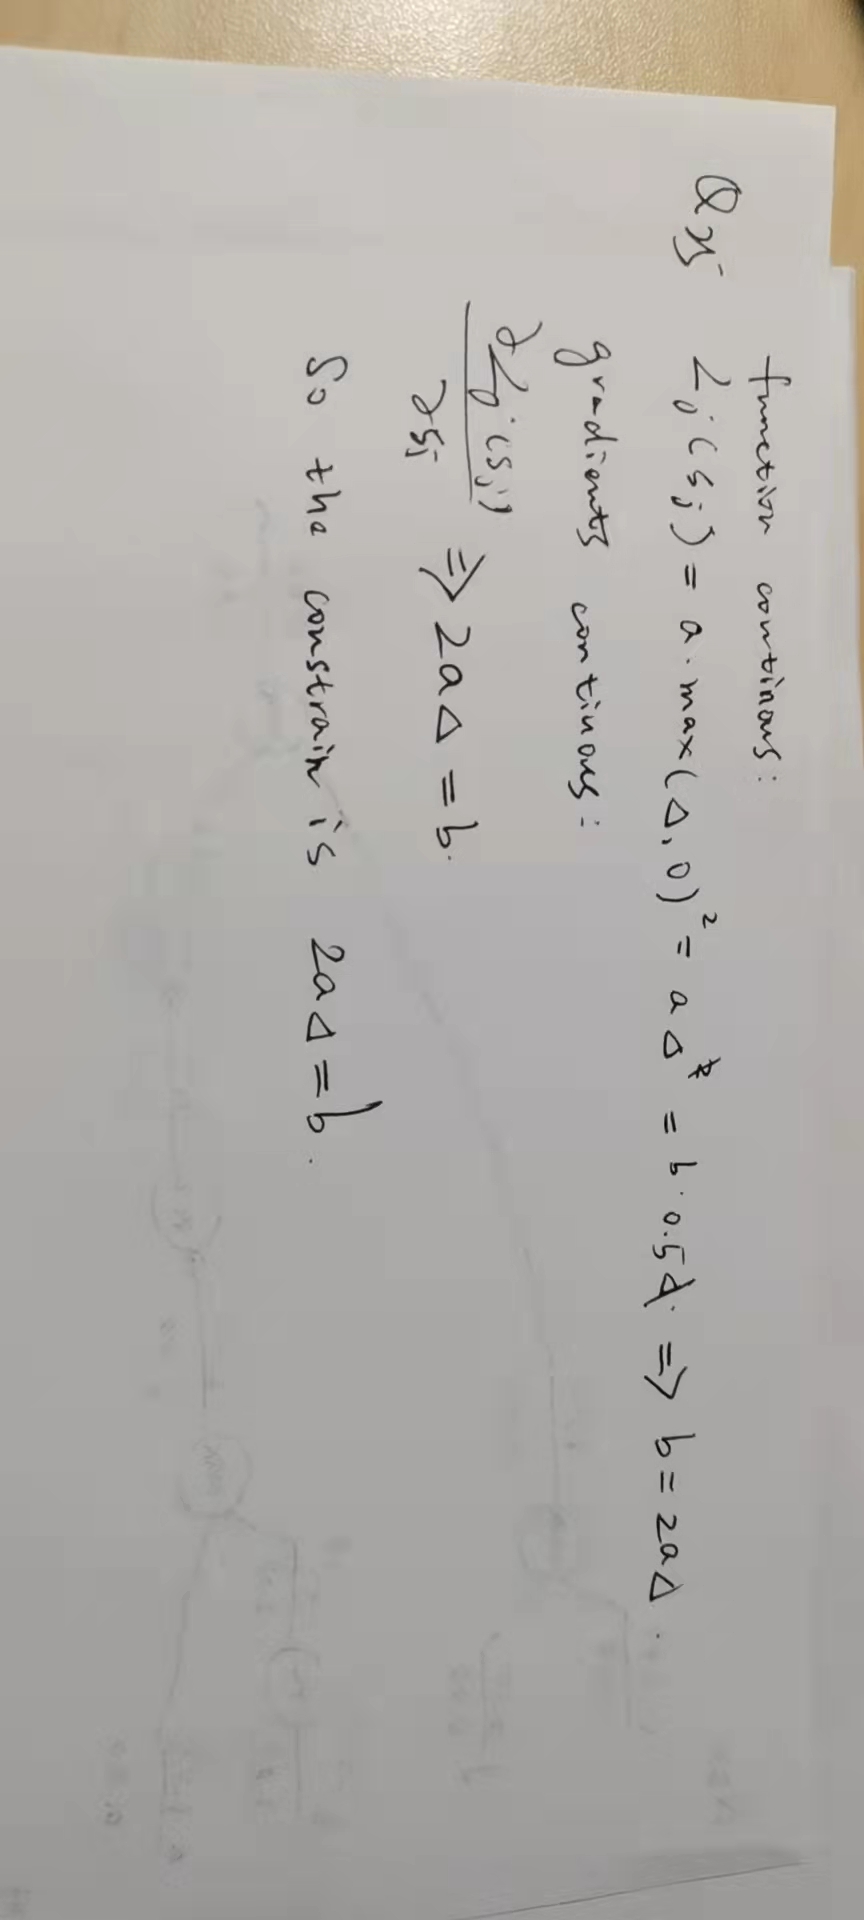 function continous:
Q3 L_j(s_j) = a · max(Δ, 0)² = a Δ² = b · 0.5Δ. ⇒ b = 2aΔ.
gradients continous:
∂L_j(s_j) / ∂s_j ⇒ 2aΔ = b.
So the constrain is 2aΔ = b.